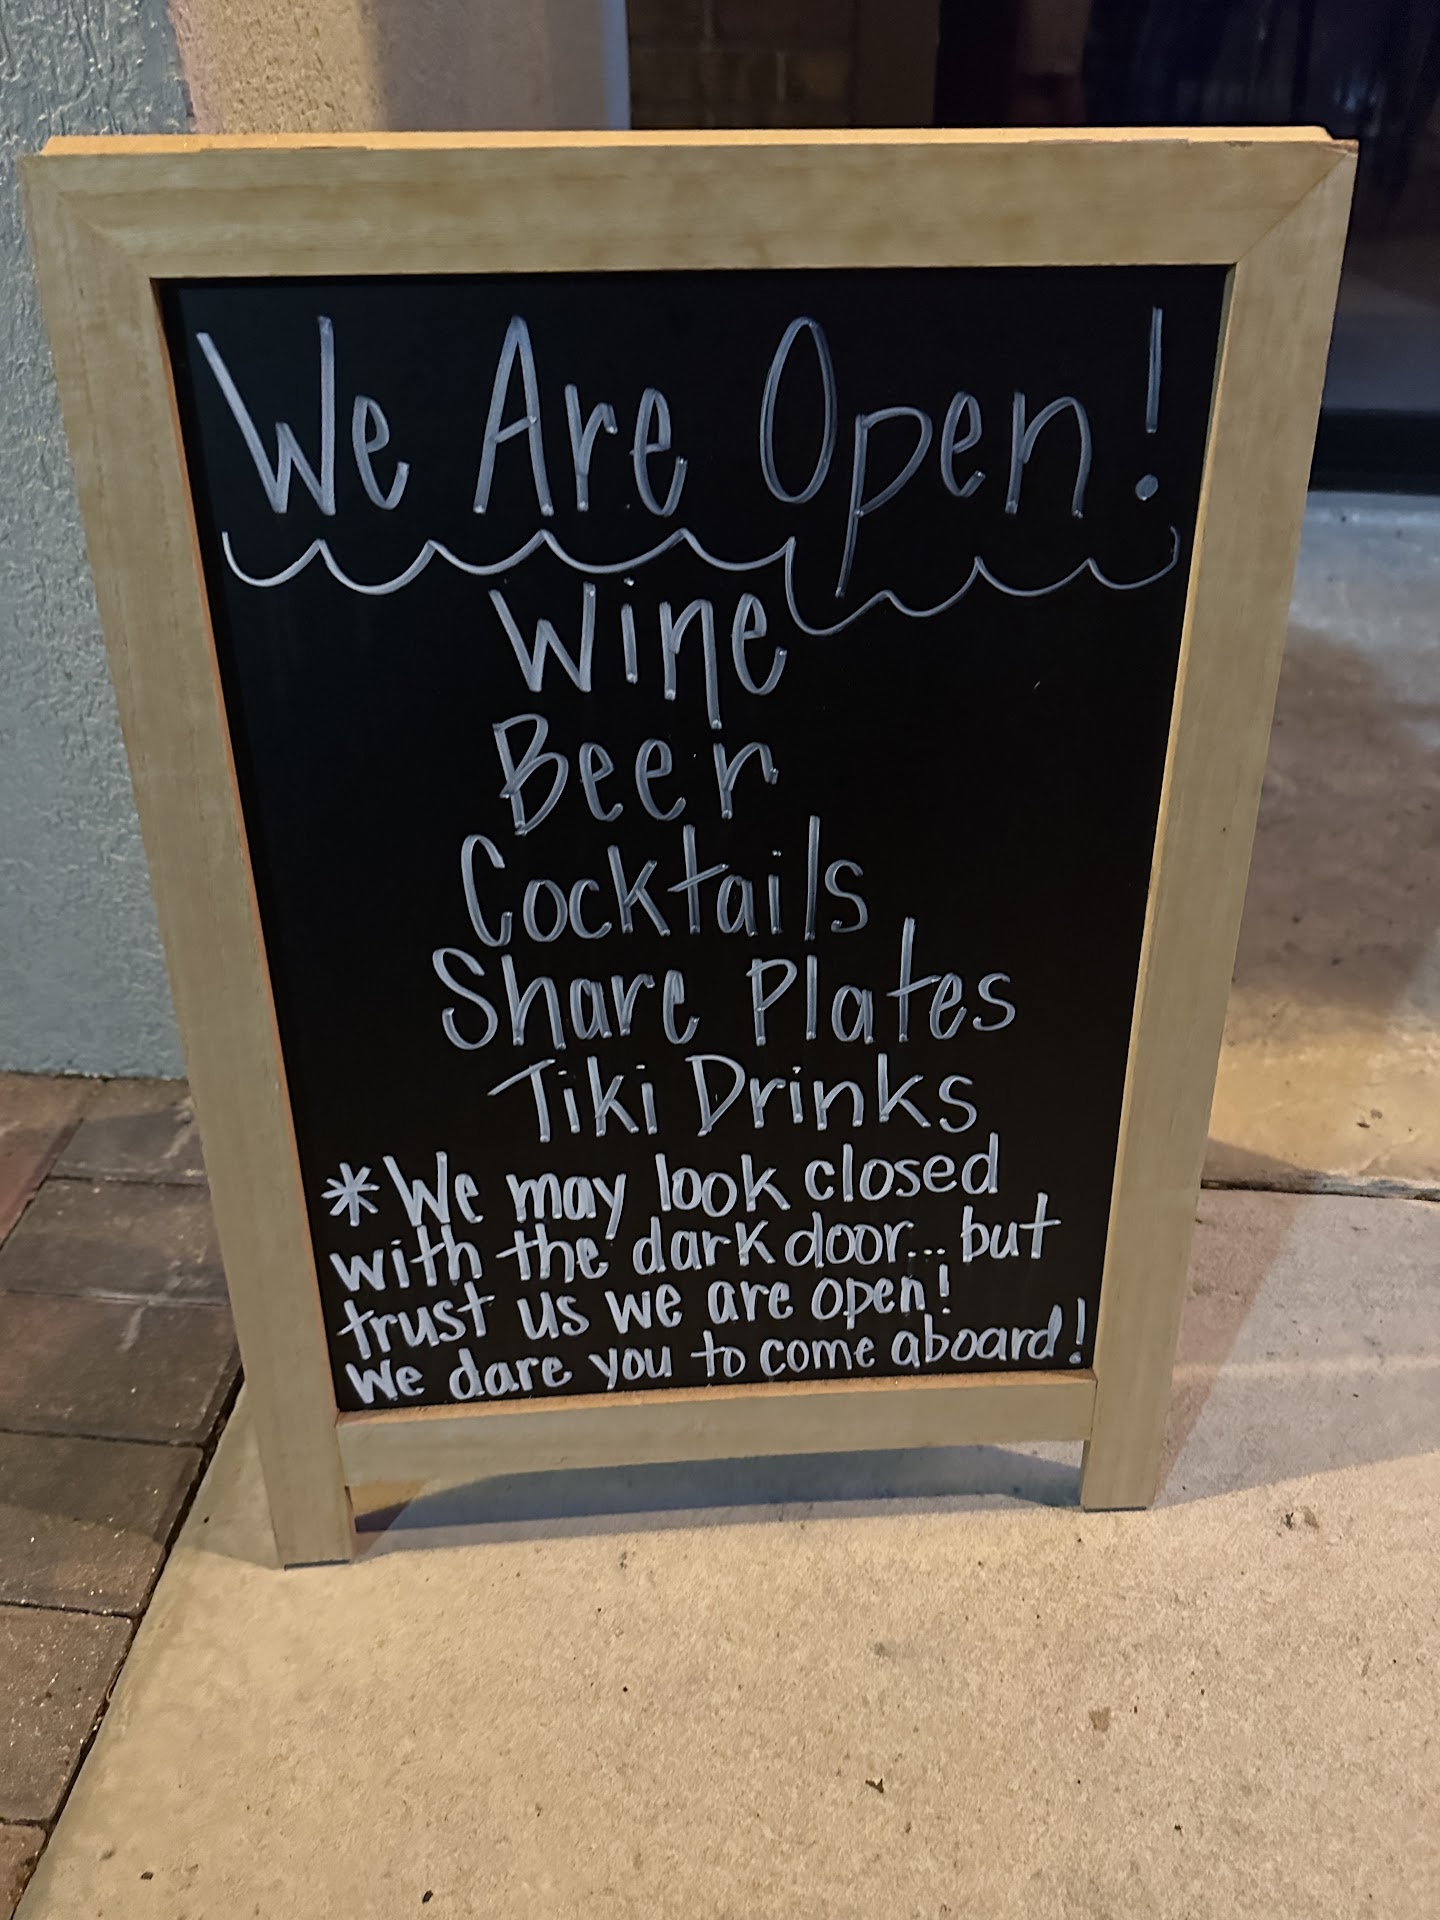 We Are Open!
Wine
Beer
Cocktails
Share Plates
Tiki Drinks
*We may look closed
with the dark door... but
trust us we are open!
We dare you to come aboard!